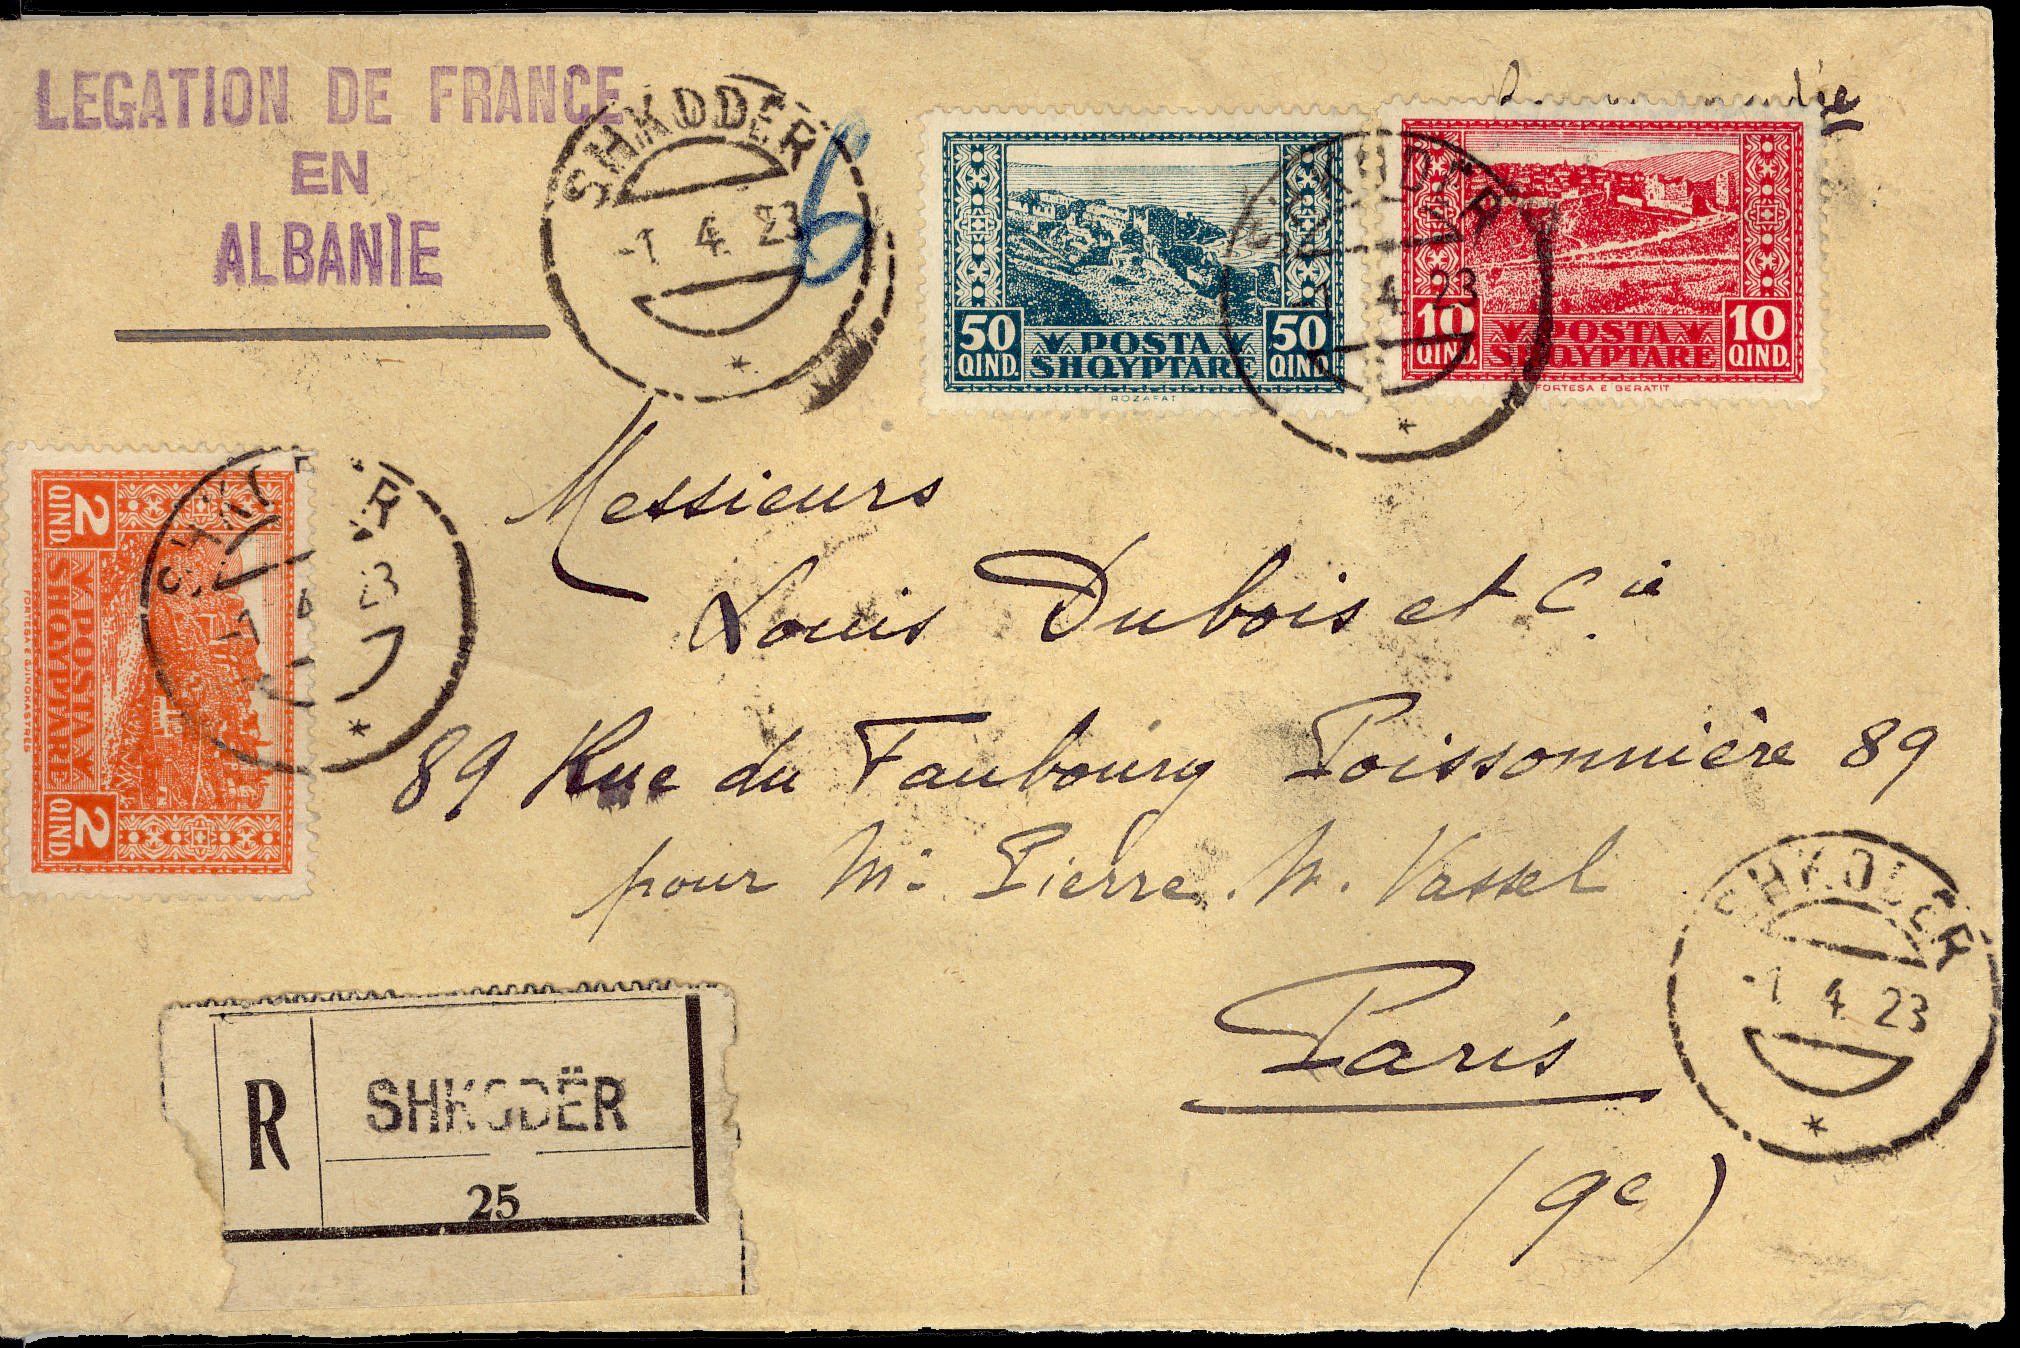 LEGATION DE FRANCE
EN
ALBANIE
SHKODËR
-1 4 23
6
50 QIND. POSTA SHQYPTARE 50 QIND.
ROZAFAT
SHKODËR
4 23
10 QIND. POSTA SHQYPTARE 10 QIND.
FORTESA E BERATIT
2 QIND. POSTA SHQYPTARE 2 QIND
FORTESA E GJINOKASTRËS
SHKODËR
23
Messieurs
Louis Dubois et Cie
89 Rue du Faubourg Poissonnière 89
pour Mr Pierre. N. Vassel
Paris
(9e)
SHKODËR
-1 4 23
R SHKODËR
25